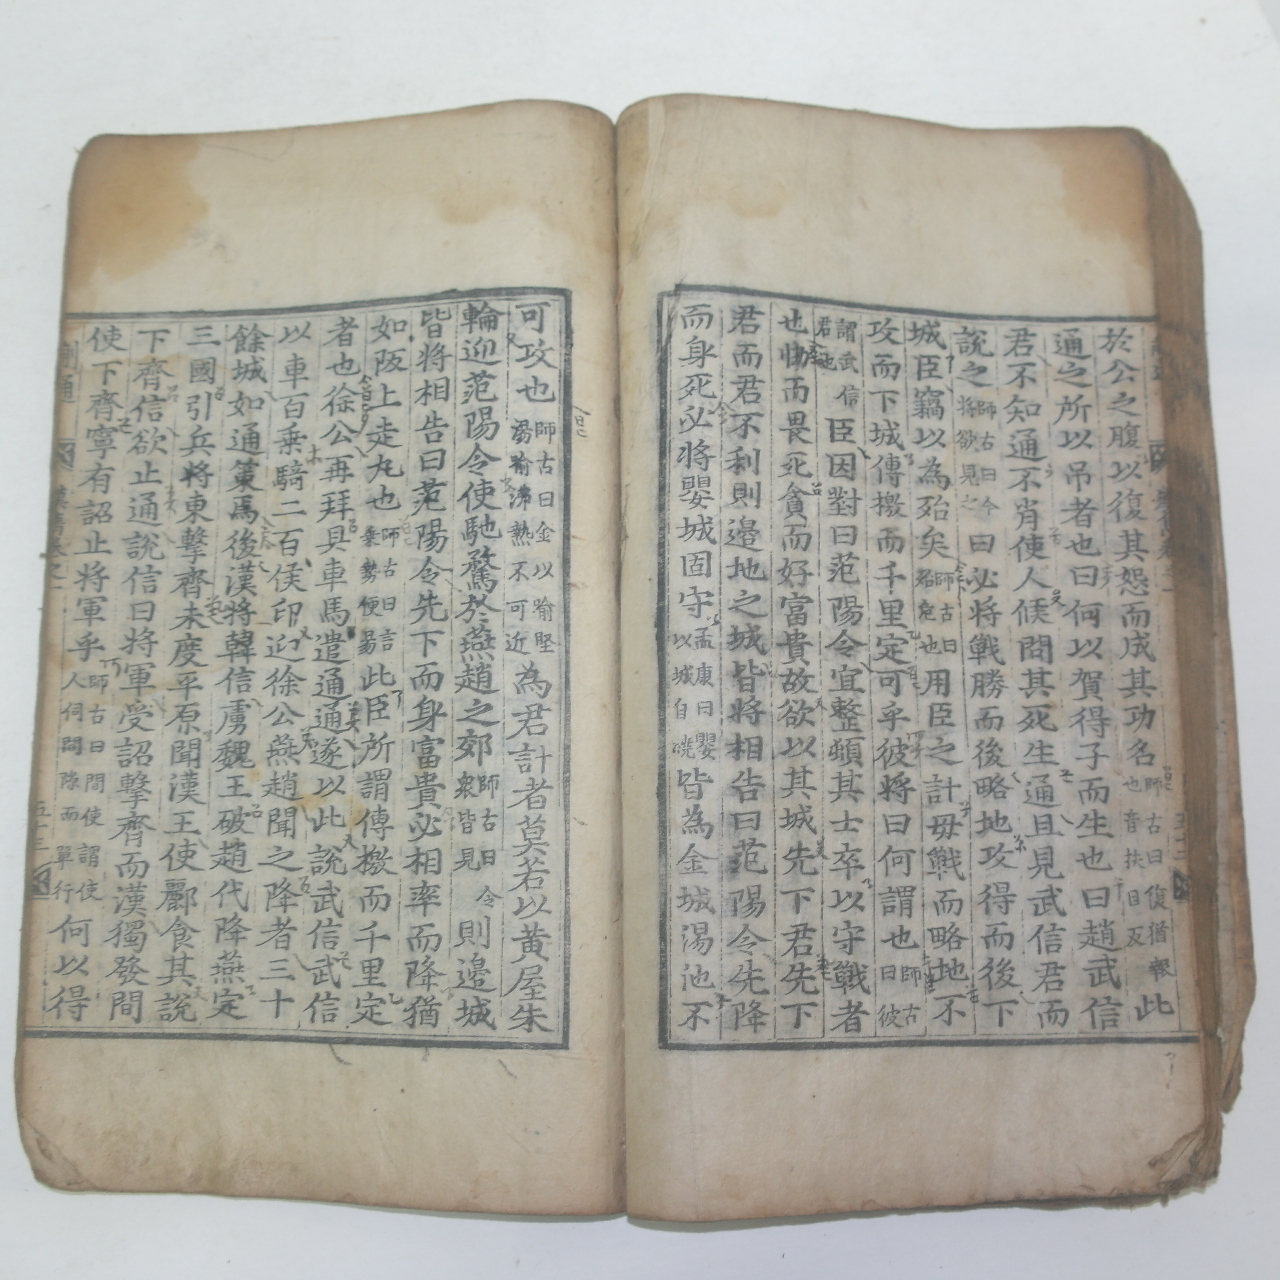 於公之腹以復其怨而成其功名師古曰復猶報也音扶目反此
通之所以吊者也曰何以賀得子而生也曰趙武信
君不知通不肖使人候問其死生通且見武信君而
說之師古曰今將欲見之曰必將戰勝而後略地攻得而後下
城臣竊以為殆矣師古曰殆危也用臣之計毋戰而略地不
攻而下城傳檄而千里定可乎彼將曰何謂也師古曰彼
謂武信君也臣因對曰范陽令宜整頓其士卒以守戰者
也怯而畏死貪而好富貴故欲以其城先下君先下
君而君不利則邊地之城皆將相告曰范陽令先降
而身死必將嬰城固守孟康曰嬰以城自繞皆為金城湯池不
可攻也師古曰金以喻堅湯喻沸熱不可近為君計者莫若以黃屋朱
輪迎范陽令使馳騖於燕趙之郊師古曰令衆皆見則邊城
皆將相告曰范陽令先下而身富貴必相率而降猶
如阪上走丸也師古曰言乗勢便易此臣所謂傳檄而千里定
者也徐公再拜具車馬遣通通遂以此說武信武信
以車百乗騎二百侯印迎徐公燕趙聞之降者三十
餘城如通策焉後漢將韓信虜魏王破趙代降燕定
三國引兵將東擊齊未度平原聞漢王使酈食其說
下齊信欲止通說信曰將軍受詔擊齊而漢獨發間
使下齊寧有詔止將軍乎師古曰間使謂使人伺間隙而單行何以得
五十三